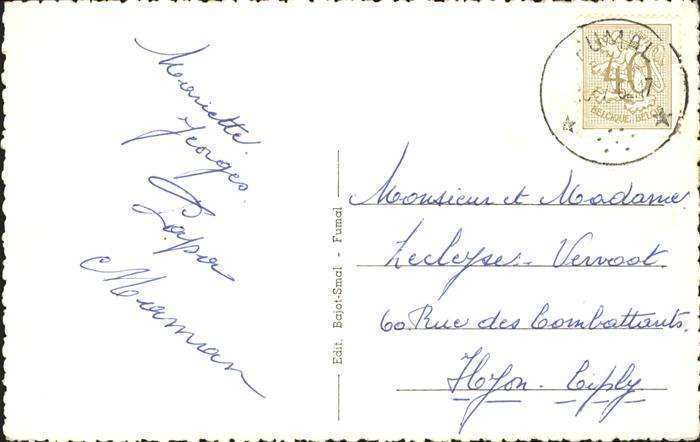 Mariette
Georges
Papa
Maman
Edit. Bajot-Smal - Fumal
FUMAL
40
BELGIQUE BELGIE
Monsieur et Madame
Lecleyse - Vervoot.
60 Rue des Combattants.
Hyon - Ciply